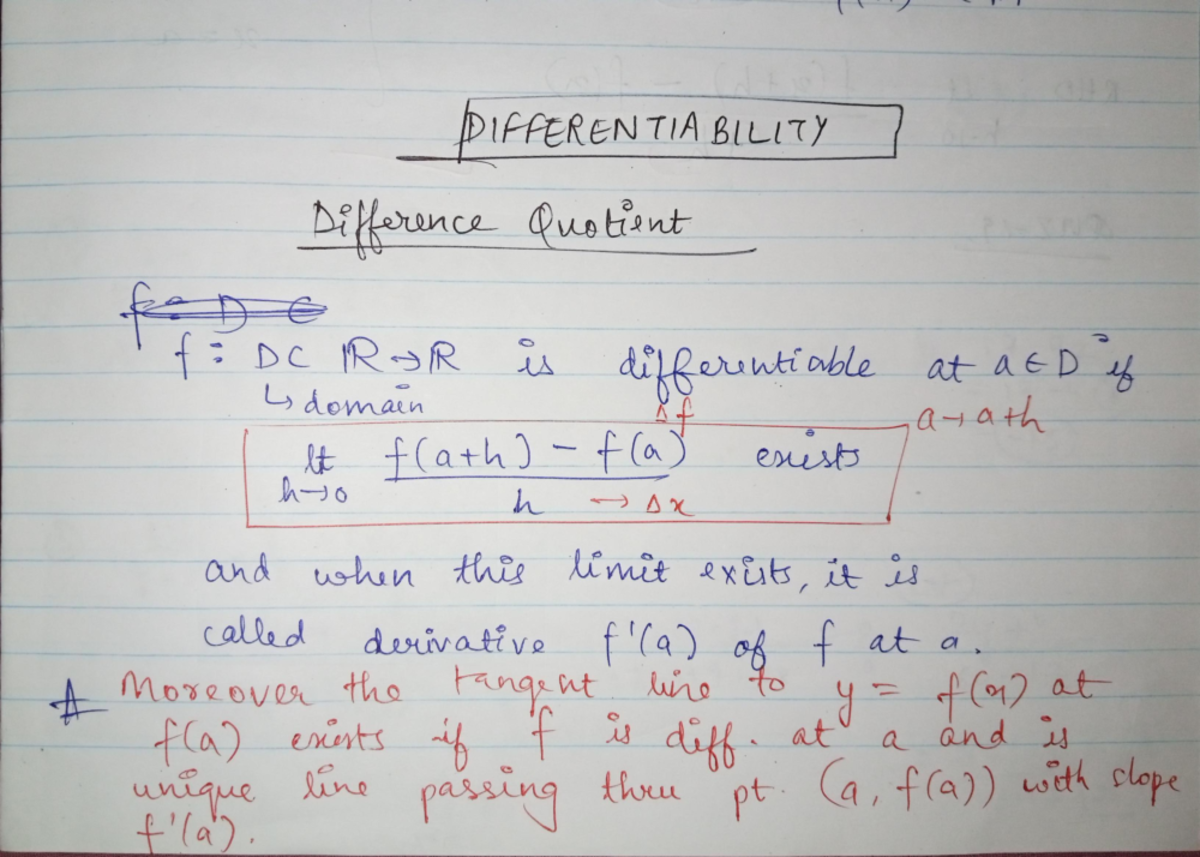 DIFFERENTIABILITY
Difference Quotient
f : D ⊂ ℝ → ℝ is differentiable at a ∈ D if
↳ domain
Δf
a → a+h
lt f(a+h) - f(a) exists
h→0 h → Δx
and when this limit exists, it is
called derivative f'(a) of f at a.
Moreover the tangent line to y = f(x) at
f(a) exists if f is diff. at a and is
unique line passing thru pt. (a, f(a)) with slope
f'(a).